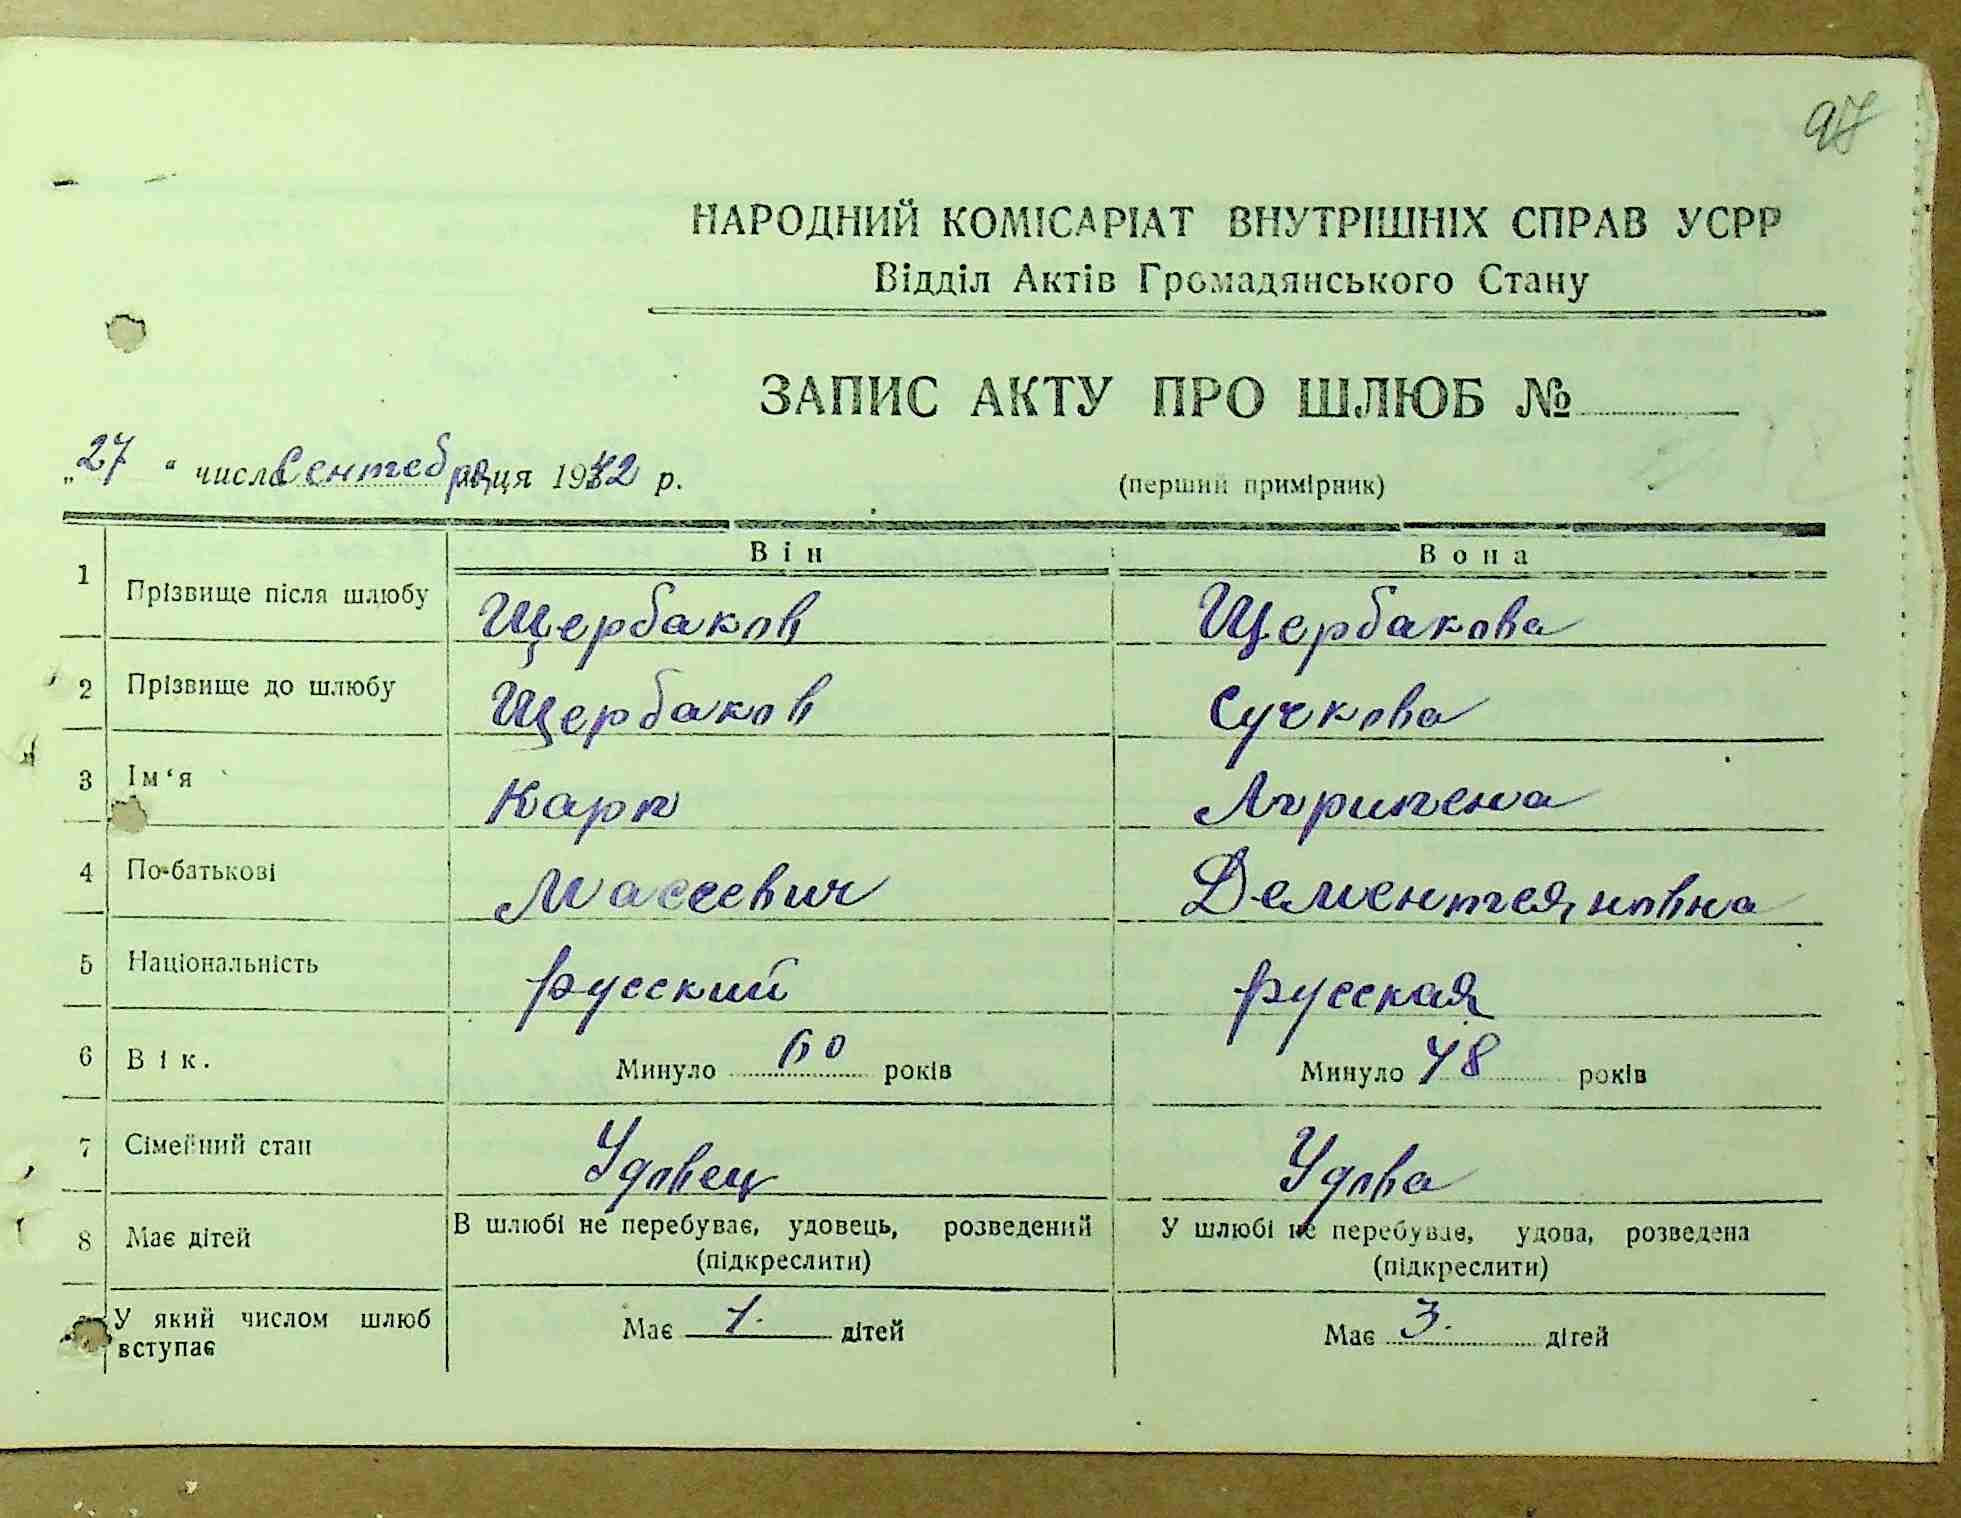 97
НАРОДНИЙ КОМІСАРІАТ ВНУТРІШНІХ СПРАВ УСРР
Відділ Актів Громадянського Стану
ЗАПИС АКТУ ПРО ШЛЮБ №
„27“ числа Сентебря місяця 1942 р.
(перший примірник)
Він Вона
1 Прізвище після шлюбу Щербаков Щербакова
2 Прізвище до шлюбу Щербаков Сучкова
3 Ім‘я Карп Агрипена
4 По-батькові Масеевич Дементеяновна
5 Національність русский русская
6 Вік. Минуло 60 років Минуло 48 років
7 Сімейний стан Удовец Удова
8 Має дітей В шлюбі не перебуває, удовець, розведений (підкреслити) У шлюбі не перебуває, удова, розведена (підкреслити)
У який числом шлюб вступає Має 1. дітей Має 3. дітей